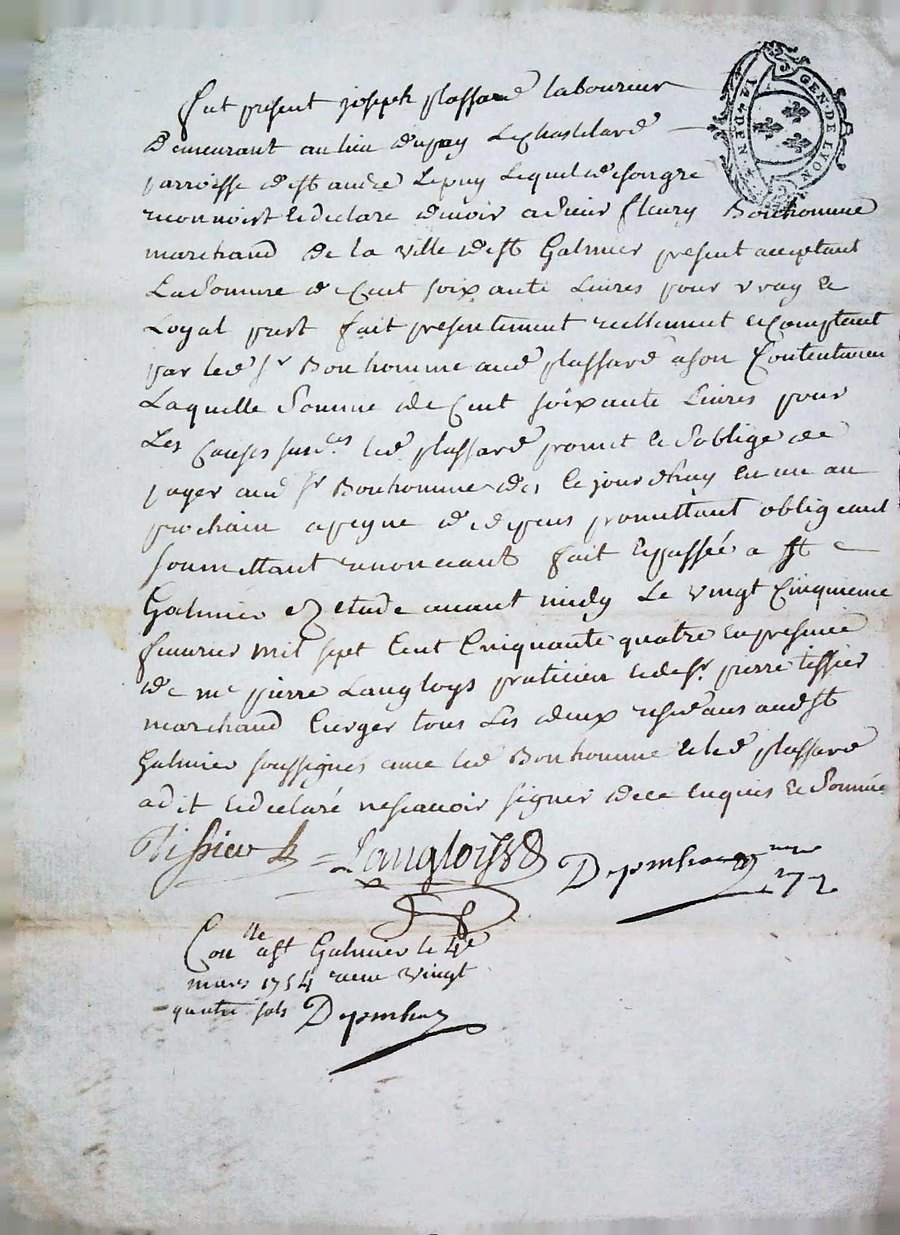 GEN·DE LYON
14 4 DEN
fut present joseph plassard laboureur
demeurant au lieu d'apay Le Chastelard
parroisse de st andré Lepuy Lequel de son gré
reconnoist et declare devoir a sieur fleury Bonhomme
marchand de la ville de st Galmier present acceptant
La somme de Cent soixante livres pour vray et
Loyal prest fait presentement reellement et comptant
par led sr Bonhomme aud plassard a son Contentement
Laquelle somme de Cent soixante livres pour
Les causes susd.es led plassard promet et s'oblige de
payer aud sr Bonhomme de ce jourdhuy en un an
prochain a peyne de depens promettant obligeant
soumettant renonceant fait et passé a st
Galmier ez etude avant midy Le vingt Cinquieme
fevrier mil sept Cent Cinquante quatre en presence
de me pierre Langloys praticien et de sr pierre tissier
marchand Cierger tous Les deux residans aud st
Galmier soussignés avec led Bonhomme et led plassard
a dit et declaré ne scavoir signer de ce enquis et sommé
Tissier Langlois
Con.lle a st Galmier le 4e
mars 1754 receu vingt
quatre sols